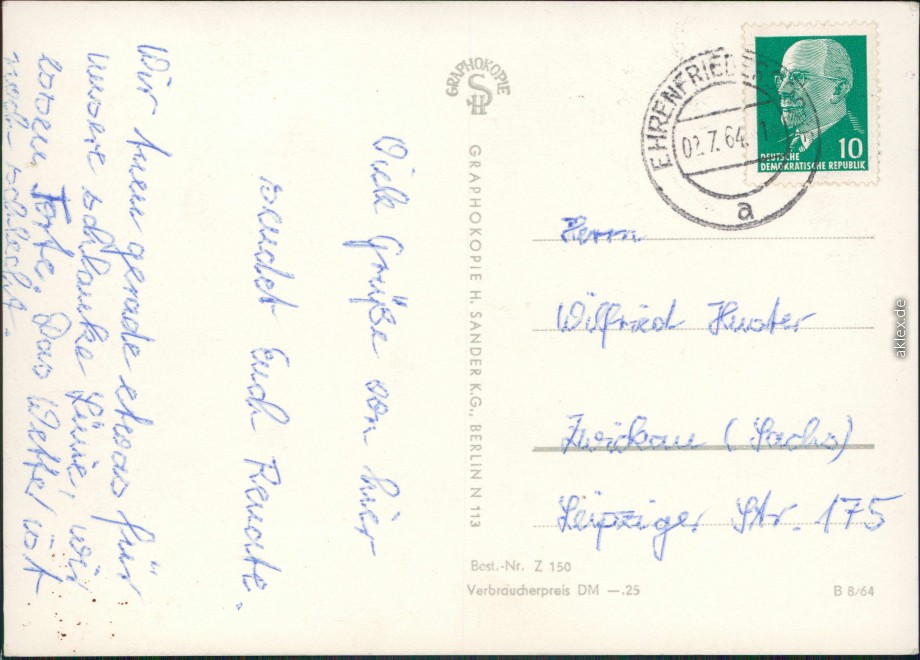 Viele Grüße von hier
sendet Euch Renate.
Wir tuen gerade etwas für
unsere schlanke Linie, wir
essen Torte. Das Wetter ist
nicht schlecht.
GRAPHOKOPIE
GRAPHOKOPIE H. SANDER K.G., BERLIN N 113
EHRENFRIEDERSDORF
02.7.64
a
10
DEUTSCHE
DEMOKRATISCHE REPUBLIK
Herrn
Wilfried Huster
Zwickau (Sachs)
Leipziger Str. 175
Best.-Nr. Z 150
Verbraucherpreis DM —.25
B 8/64
aklex.de